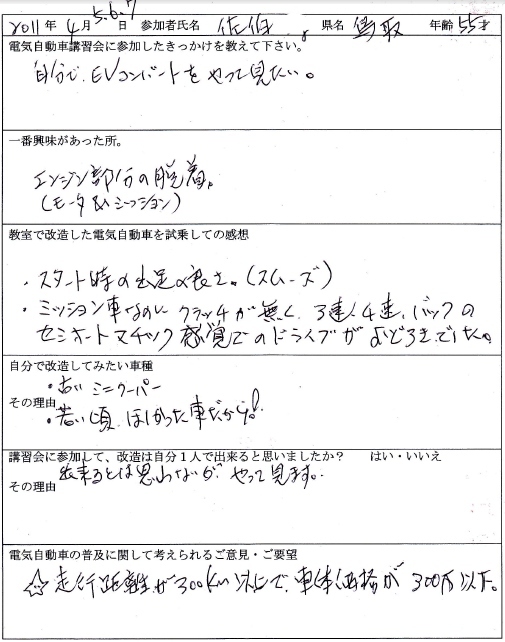 2011年 4月 5.6.7日 参加者氏名 佐伯 県名 鳥取 年齢 55才
電気自動車講習会に参加したきっかけを教えて下さい。
自分で、EVコンバートをやって見たい。
一番興味があった所。
エンジン部分の脱着。
(モータ&ミッション)
教室で改造した電気自動車を試乗しての感想
・スタート時の出足の良さ。(スムーズ)
・ミッション車なのに クラッチが無く、3速、4速、バックの
セミオートマチック感覚でのドライブがおどろきでした。
自分で改造してみたい車種
・古い ミニクーパー
その理由
・若い頃、ほしかった車だから!
講習会に参加して、改造は自分1人で出来ると思いましたか? はい・いいえ
出来るとは思わないが、やって見ます。
その理由
電気自動車の普及に関して考えられるご意見・ご要望
☆走行距離が300km以上で、車体価格が300万以下。